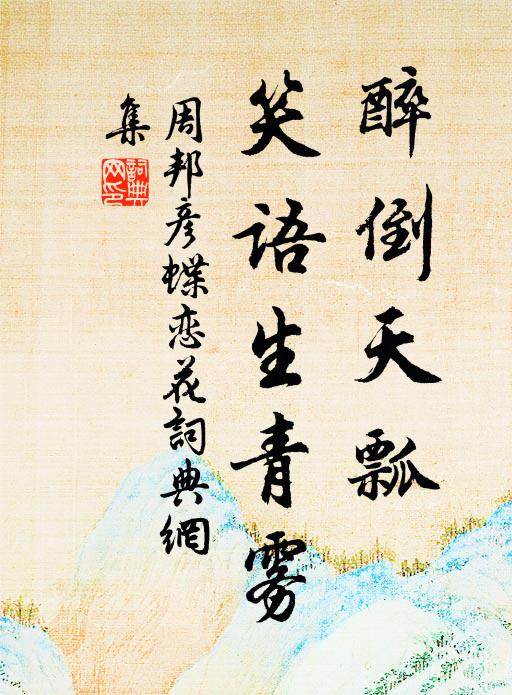 醉倒天瓢
笑語生青雾
周邦彦蝶恋花詞典網
集
詞典网印